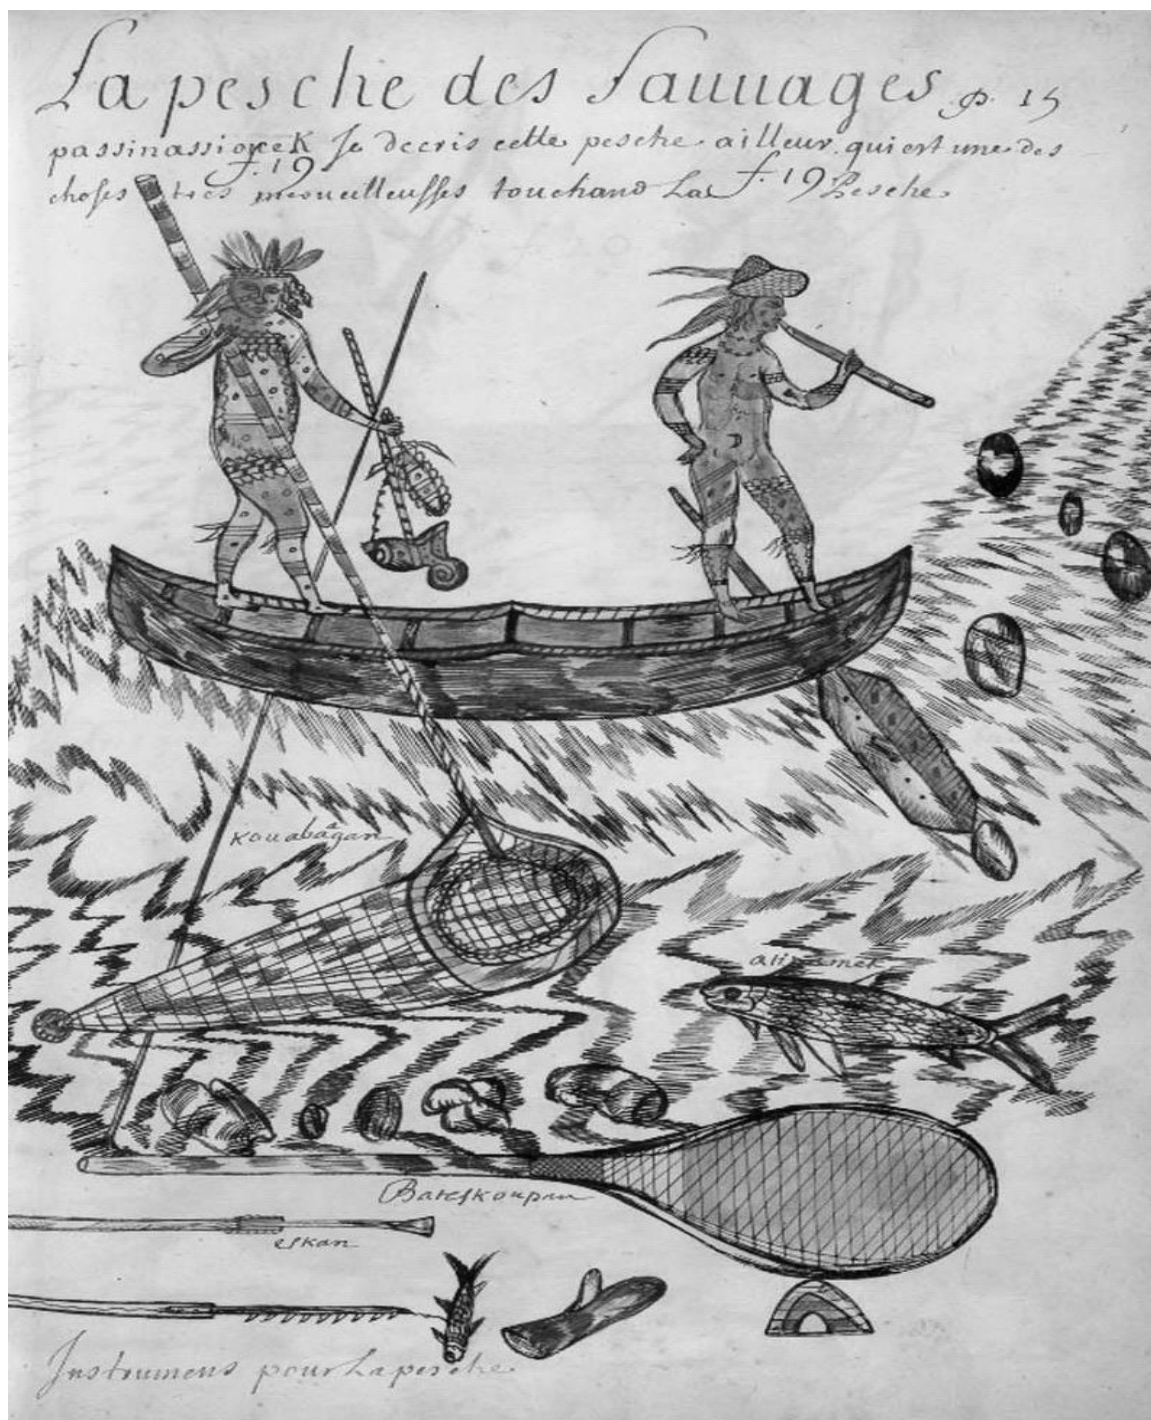 La pesche des Sauuages p. 15
passinassiouek Je decris cette pesche ailleur qui est une des
f. 19
choses tres meruellieusses touchand La f. 19 Pesche
Kouabagan
atikamek
Bateskoupan
eskan
Instrumens pour la pesche